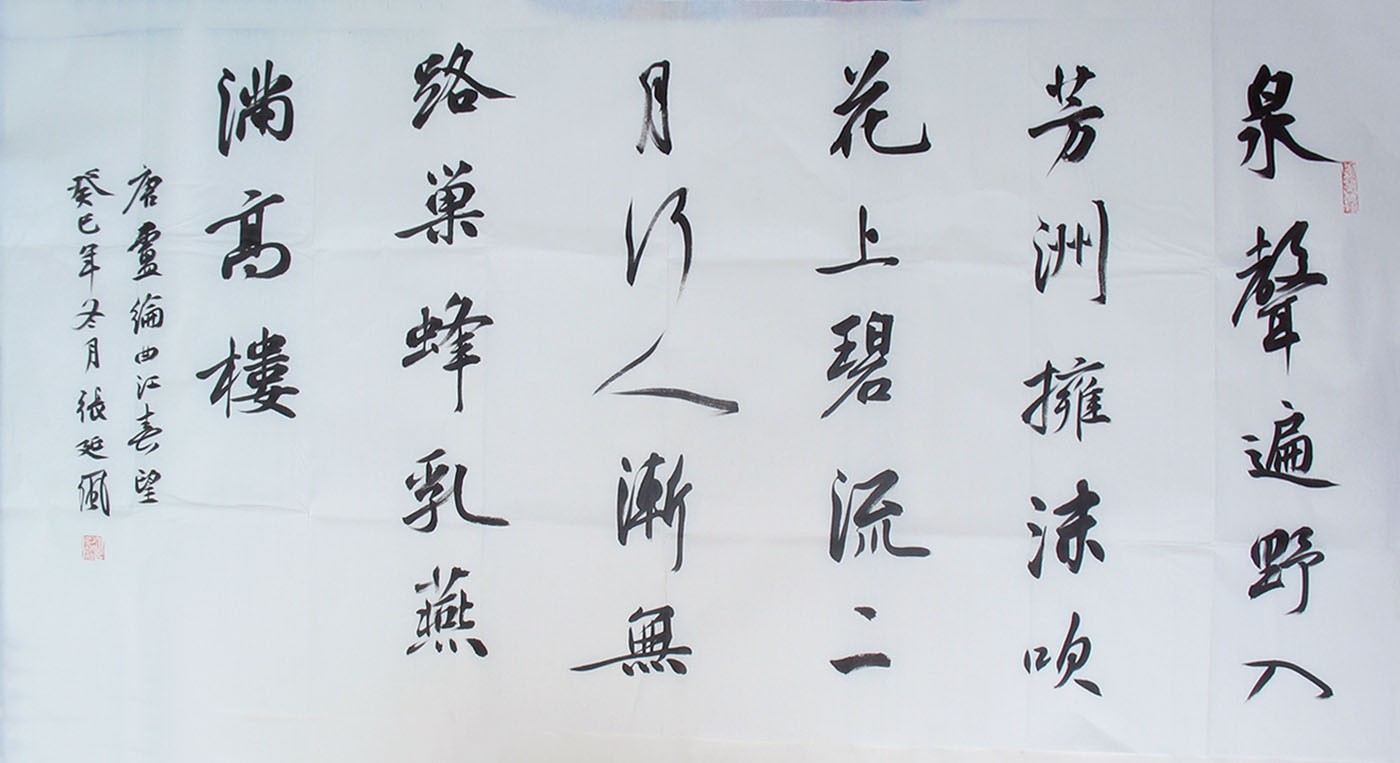 泉聲遍野入
芳洲擁沫吹
花上碧流二
月行人漸無
路巢蜂乳燕
滿高樓
唐盧綸曲江春望
癸巳年冬月張延佩